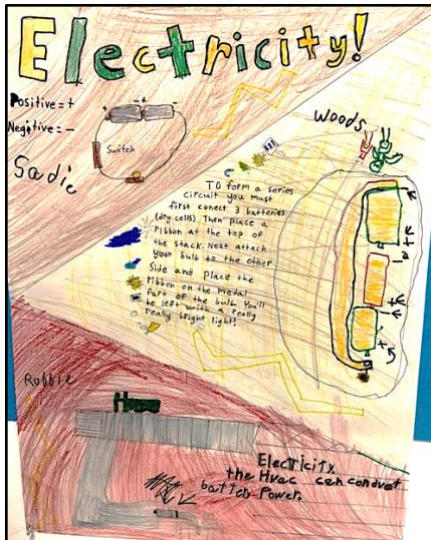 Electricity!
Positive = +
Negative = -
- + -
Switch
Sadie
Woods
TO form a series
circuit you must
first conect 3 batteries
(dry cells). Then place a
ribbon at the top of
the stack. Next attach
your bulb to the other
Side and Place the
ribbon on the metal
Part of the bulb. You'll
be left with a really
really bright light!
Robbie
Electricity.
the Hvac can conduct
battery Power.